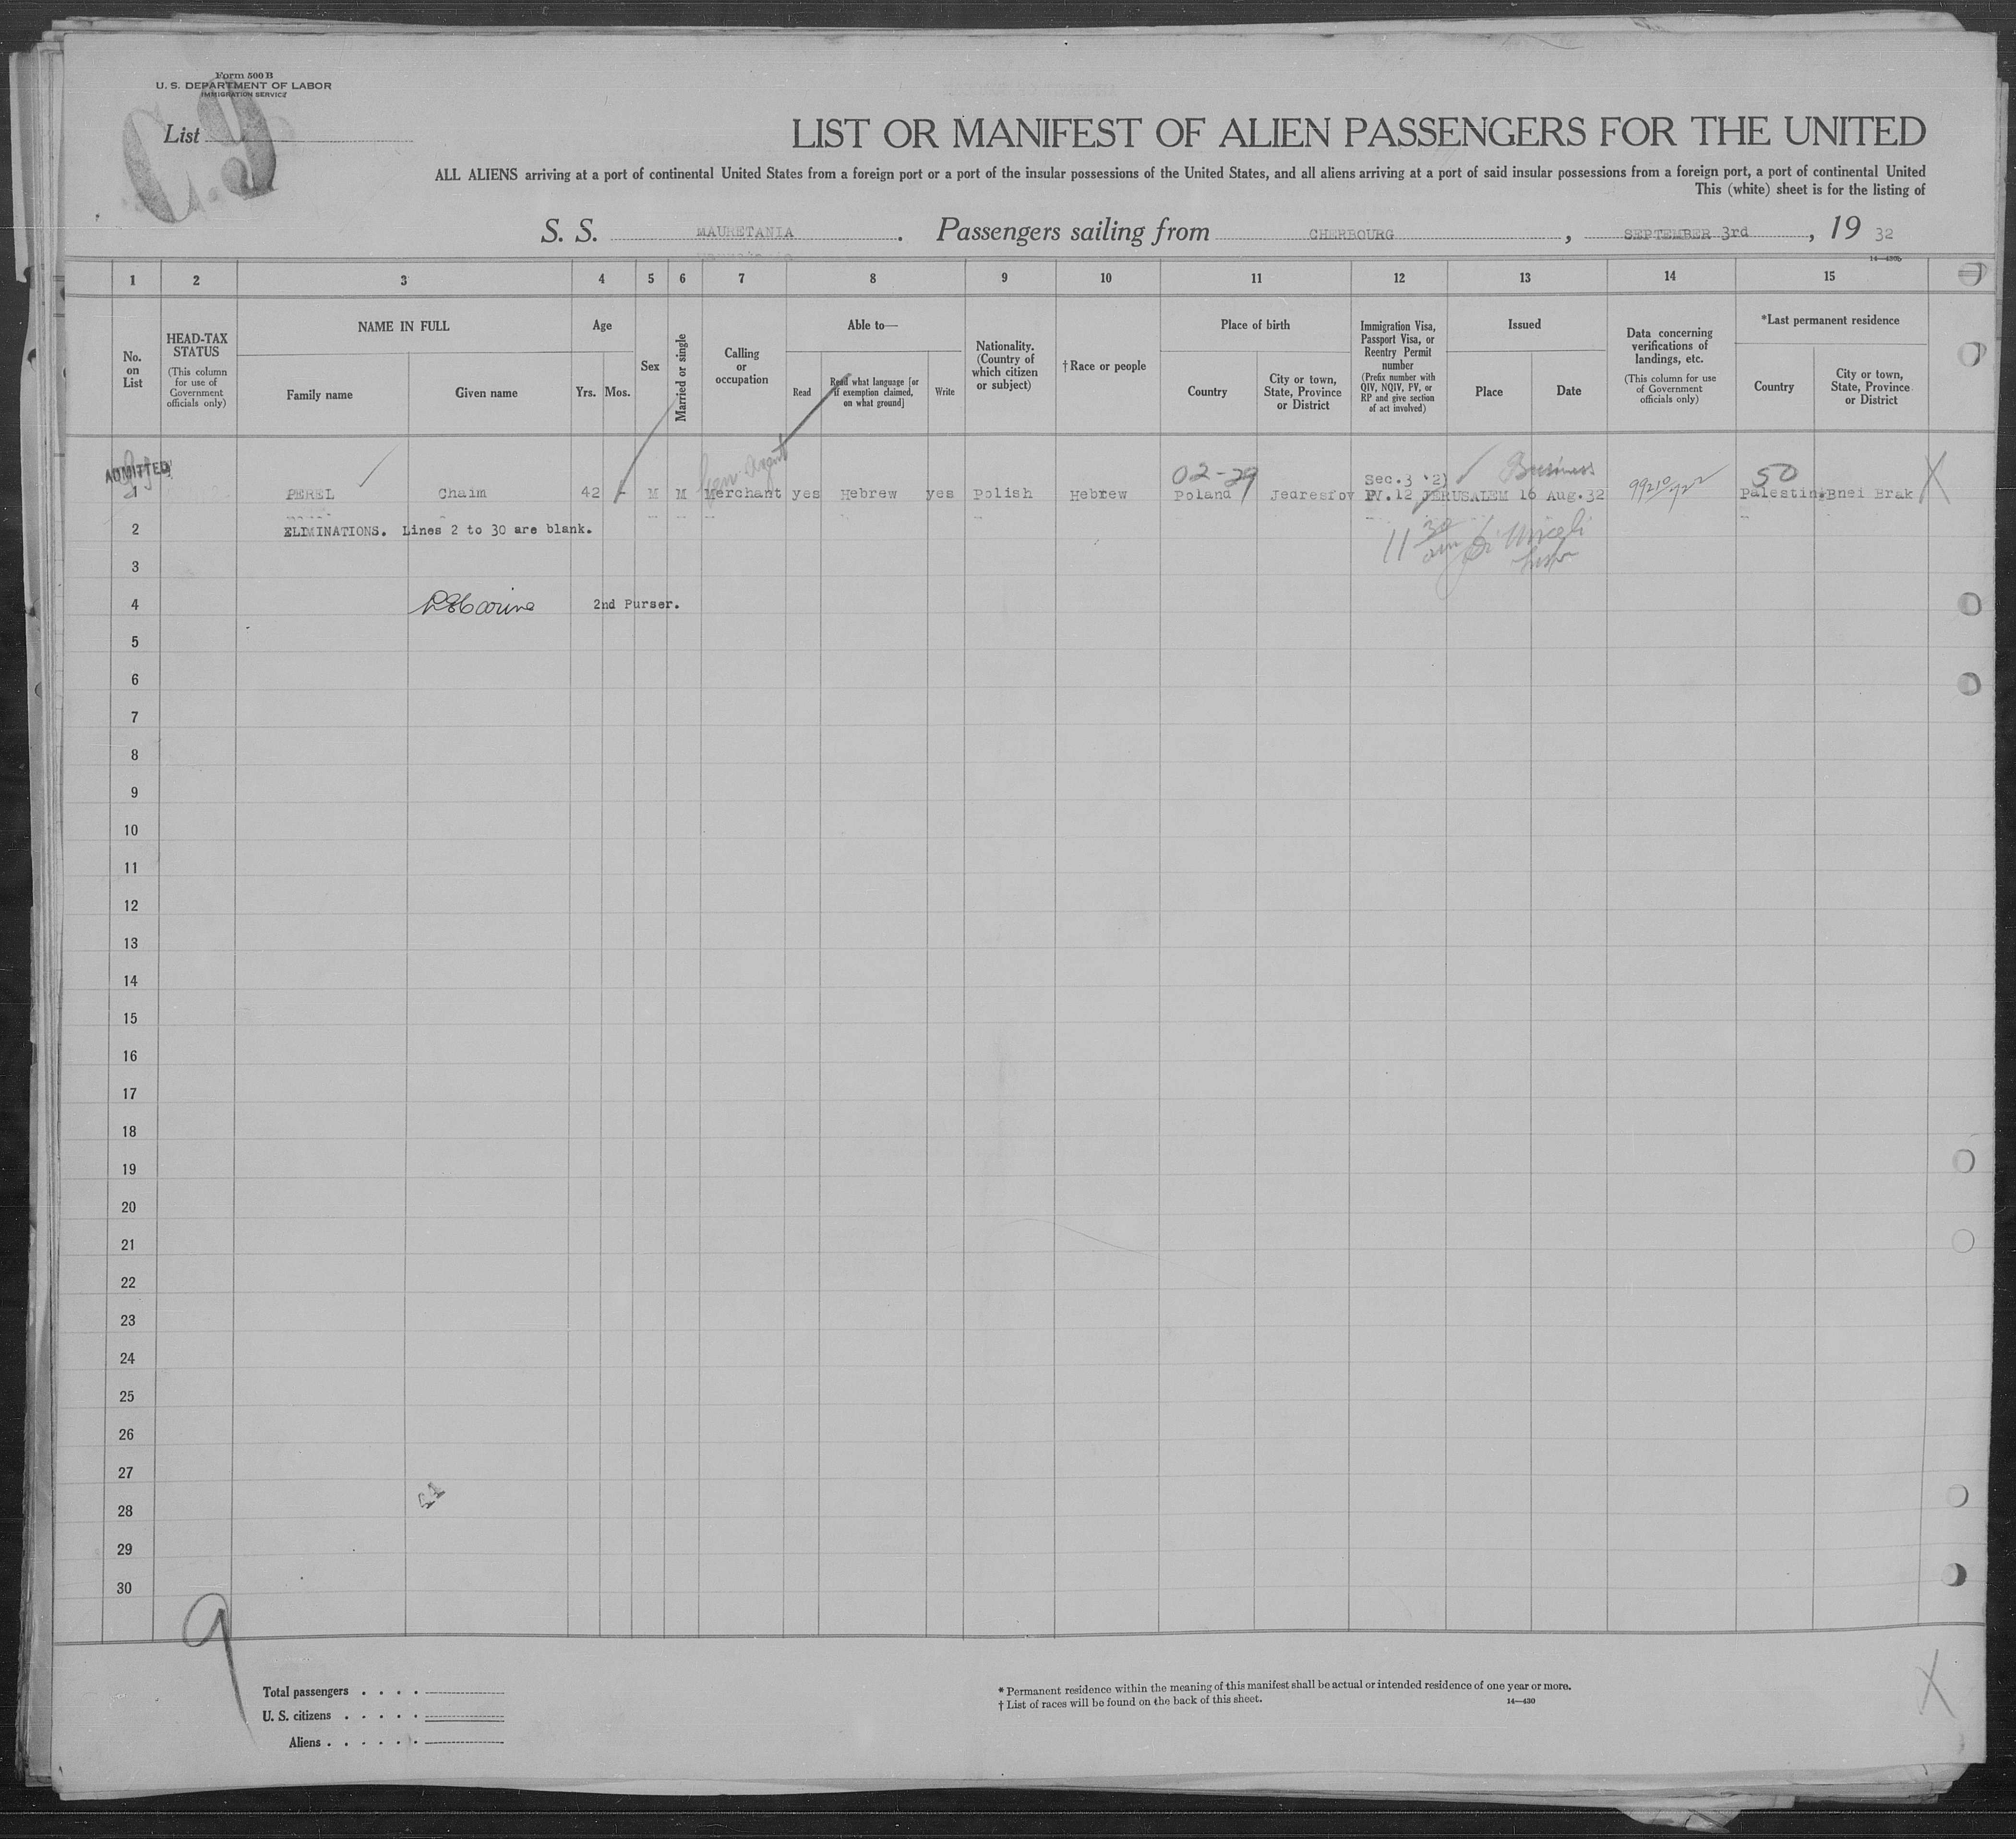 Form 500 B
U. S. DEPARTMENT OF LABOR
IMMIGRATION SERVICE
List
9
LIST OR MANIFEST OF ALIEN PASSENGERS FOR THE UNITED
ALL ALIENS arriving at a port of continental United States from a foreign port or a port of the insular possessions of the United States, and all aliens arriving at a port of said insular possessions from a foreign port, a port of continental United
This (white) sheet is for the listing of
S. S. MAURETANIA. Passengers sailing from CHERBOURG, SEPTEMBER 3rd, 19 32
14—430b
1 2 3 4 5 6 7 8 9 10 11 12 13 14 15
No. on List
HEAD-TAX STATUS
(This column for use of Government officials only)
NAME IN FULL
Family name
Given name
Age
Yrs. Mos.
Sex
Married or single
Calling or occupation
Able to—
Read
Read what language [or if exemption claimed, on what ground]
Write
Nationality. (Country of which citizen or subject)
† Race or people
Place of birth
Country
City or town, State, Province or District
Immigration Visa, Passport Visa, or Reentry Permit number
(Prefix number with QIV, NQIV, PV, or RP and give section of act involved)
Issued
Place
Date
Data concerning verifications of landings, etc.
(This column for use of Government officials only)
*Last permanent residence
Country
City or town, State, Province or District
ADMITTED
02-29
Sec.3 (2)
Business
50
1 PEREL Chaim 42 - M M Merchant yes Hebrew yes Polish Hebrew Poland PV.12 JERUSALEM 16 Aug.32 Palestine Bnei Brak X
2 ELIMINATIONS. Lines 2 to 30 are blank.
11 30
3
4 2nd Purser.
5
6
7
8
9
10
11
12
13
14
15
16
17
18
19
20
21
22
23
24
25
26
27
28
29
30
9
Total passengers . . . .
U. S. citizens . . . . .
Aliens . . . . . .
* Permanent residence within the meaning of this manifest shall be actual or intended residence of one year or more.
† List of races will be found on the back of this sheet.
14—430
X